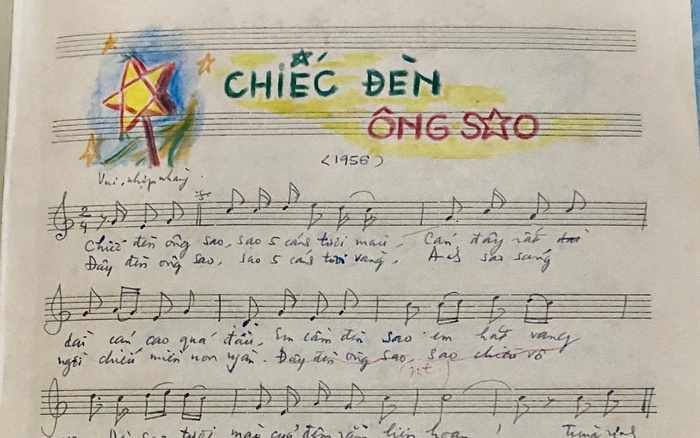 CHIẾC ĐÈN
ÔNG SAO
(1956)
Vui, nhịp nhàng.
2
4
Chiếc đèn ông sao, sao 5 cánh tươi màu, Cán đây rất dài
Đây đèn ông sao, sao 5 cánh tươi vàng, Ánh sao sáng
dài cán cao quá đầu, Em cầm đèn sao em hát vang
ngời chiếu miền non ngàn. Đây đèn ông sao, sao chiếu vô
sao tươi màu của đêm rằm liên hoan